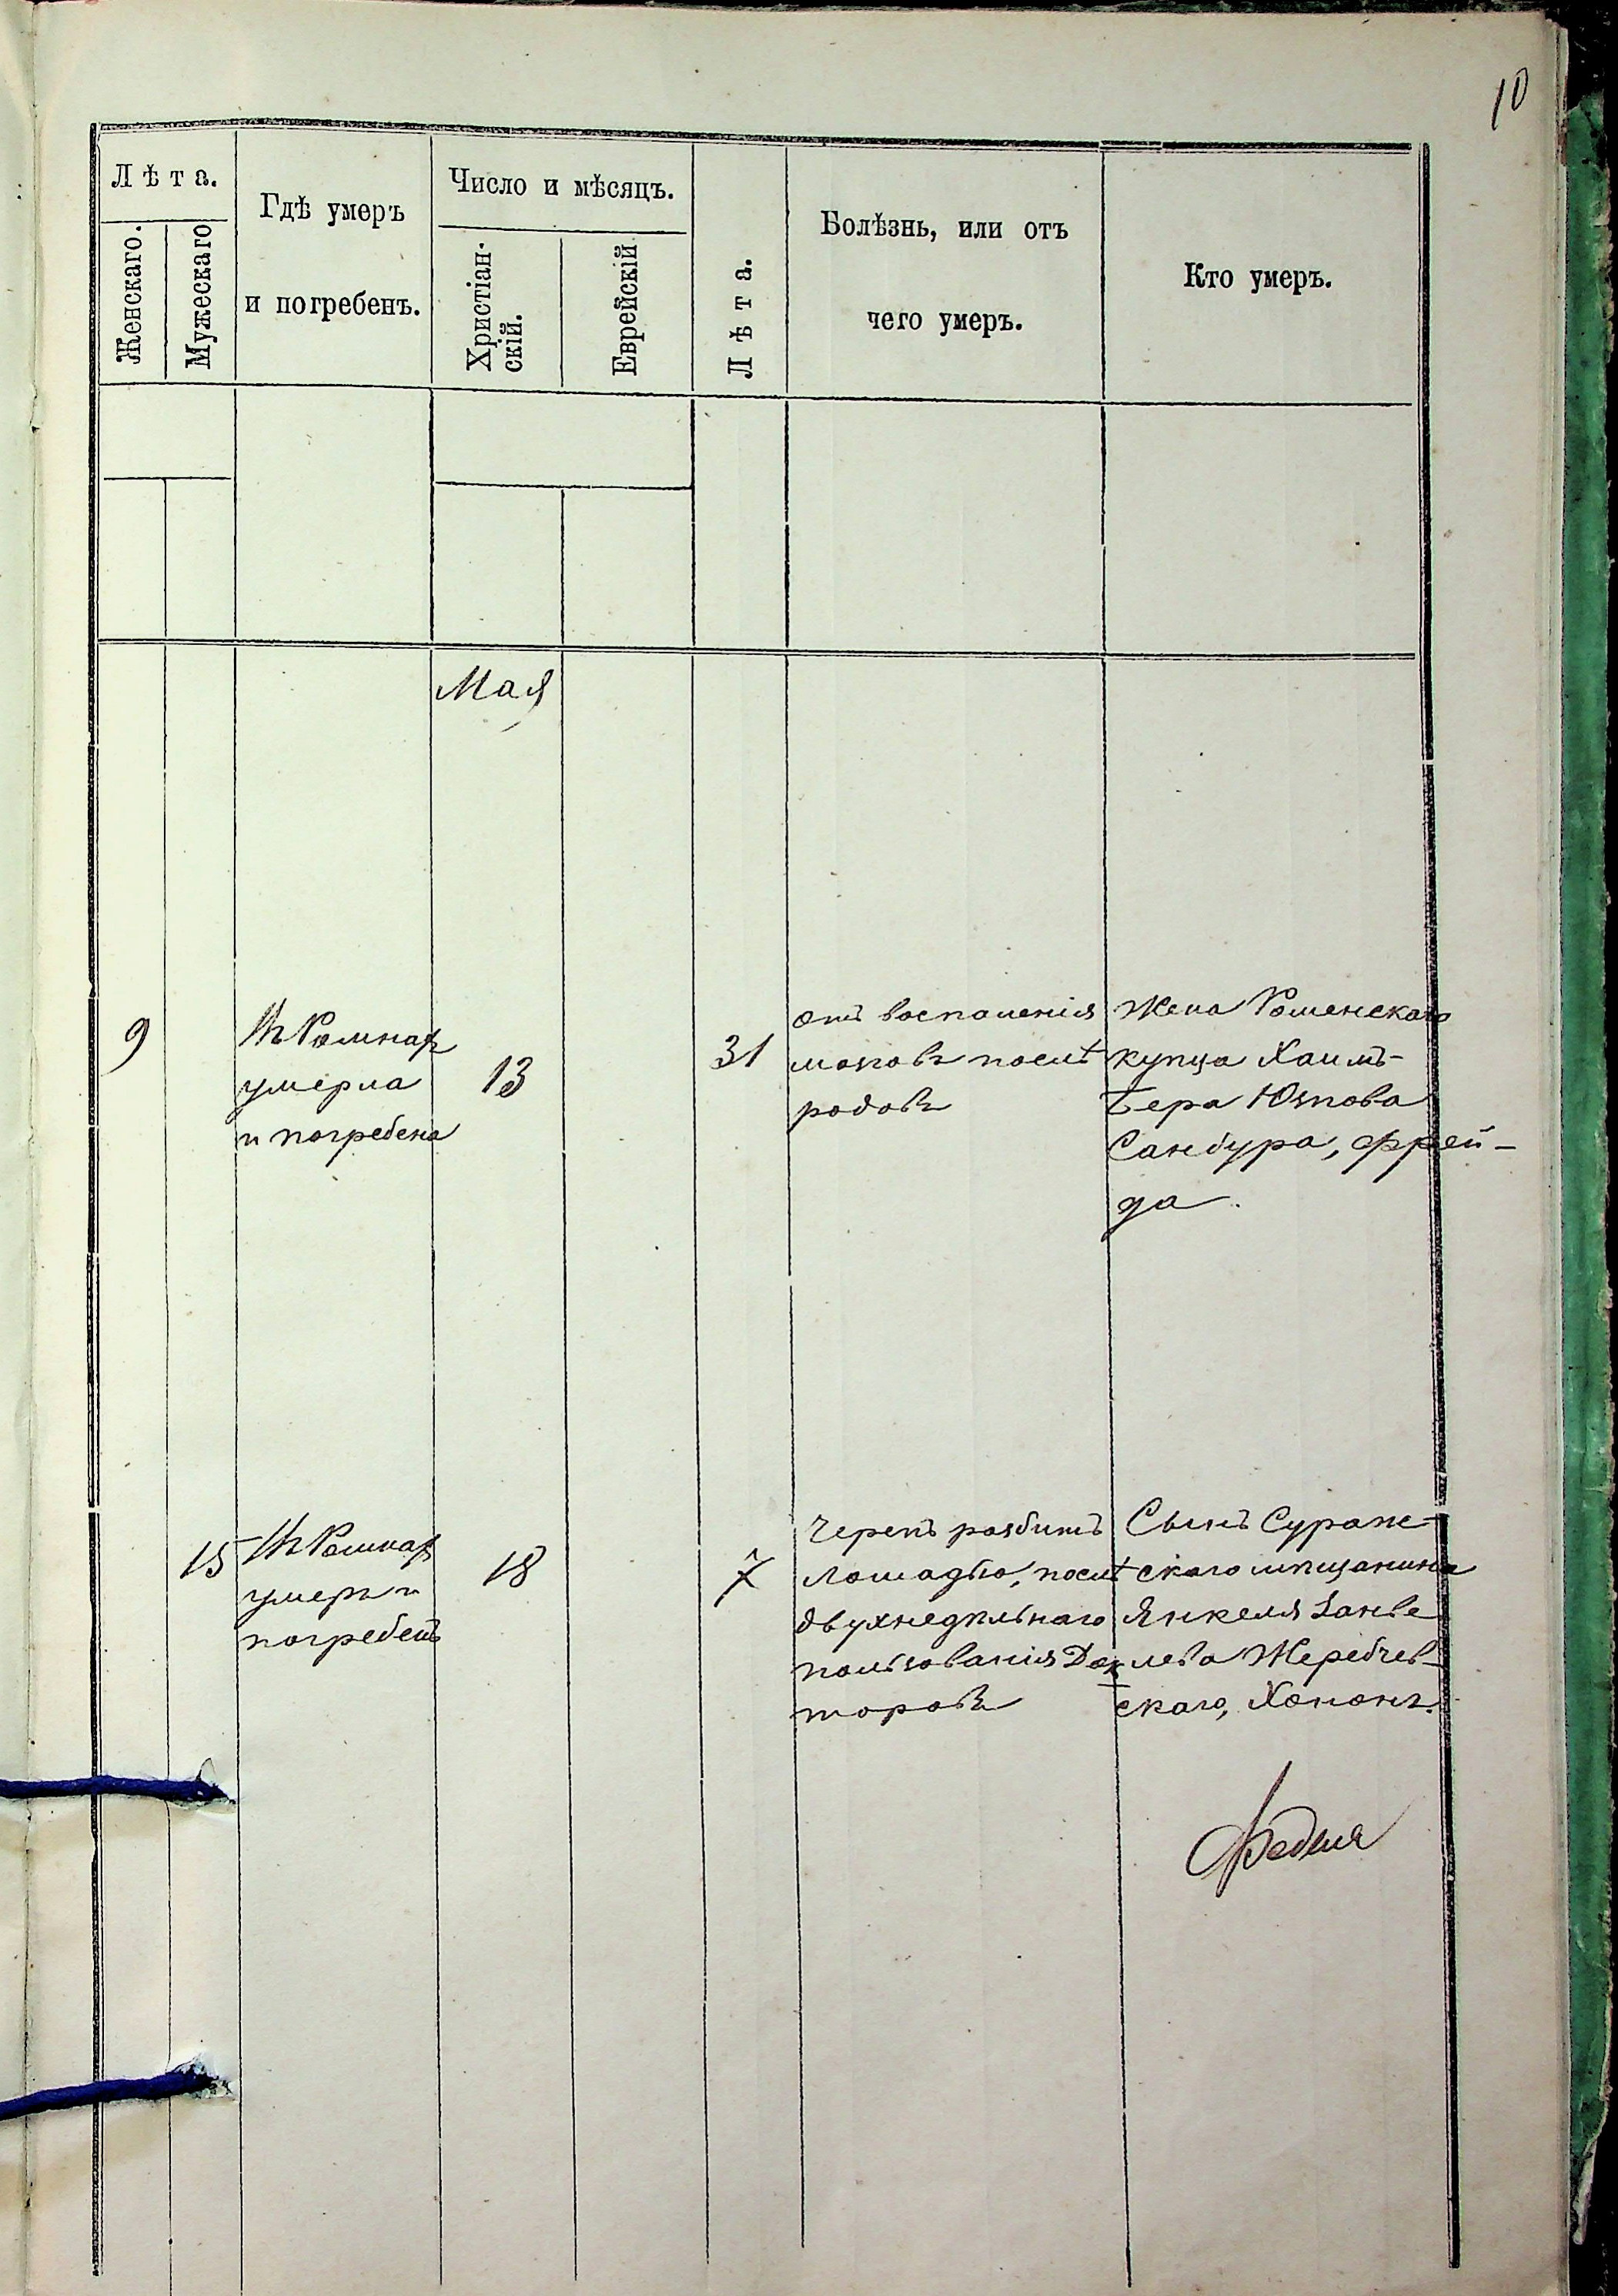 10
Лѣта.
Женскаго.
Мужескаго
Гдѣ умеръ
и погребенъ.
Число и мѣсяцъ.
Христіан-
скій.
Еврейскій
Лѣта.
Болѣзнь, или отъ
чего умеръ.
Кто умеръ.
Мая
9
Въ Ромнахъ
умерла
и погребена
13
31
отъ воспаленія
послѣ
родовъ
Жена Роменскаго
купца Хаимъ-
Бера Юзпова
Сандура, Фрей-
да.
15
Въ Ромнахъ
умеръ и
погребенъ
18
7
Черепъ разбитъ
лошадью, послѣ
двухнедѣльнаго
пользованія Док
торовъ
Сынъ Сураж-
скаго мѣщанина
Янкеля Занве
лева Жеребчев-
скаго, Хононъ.